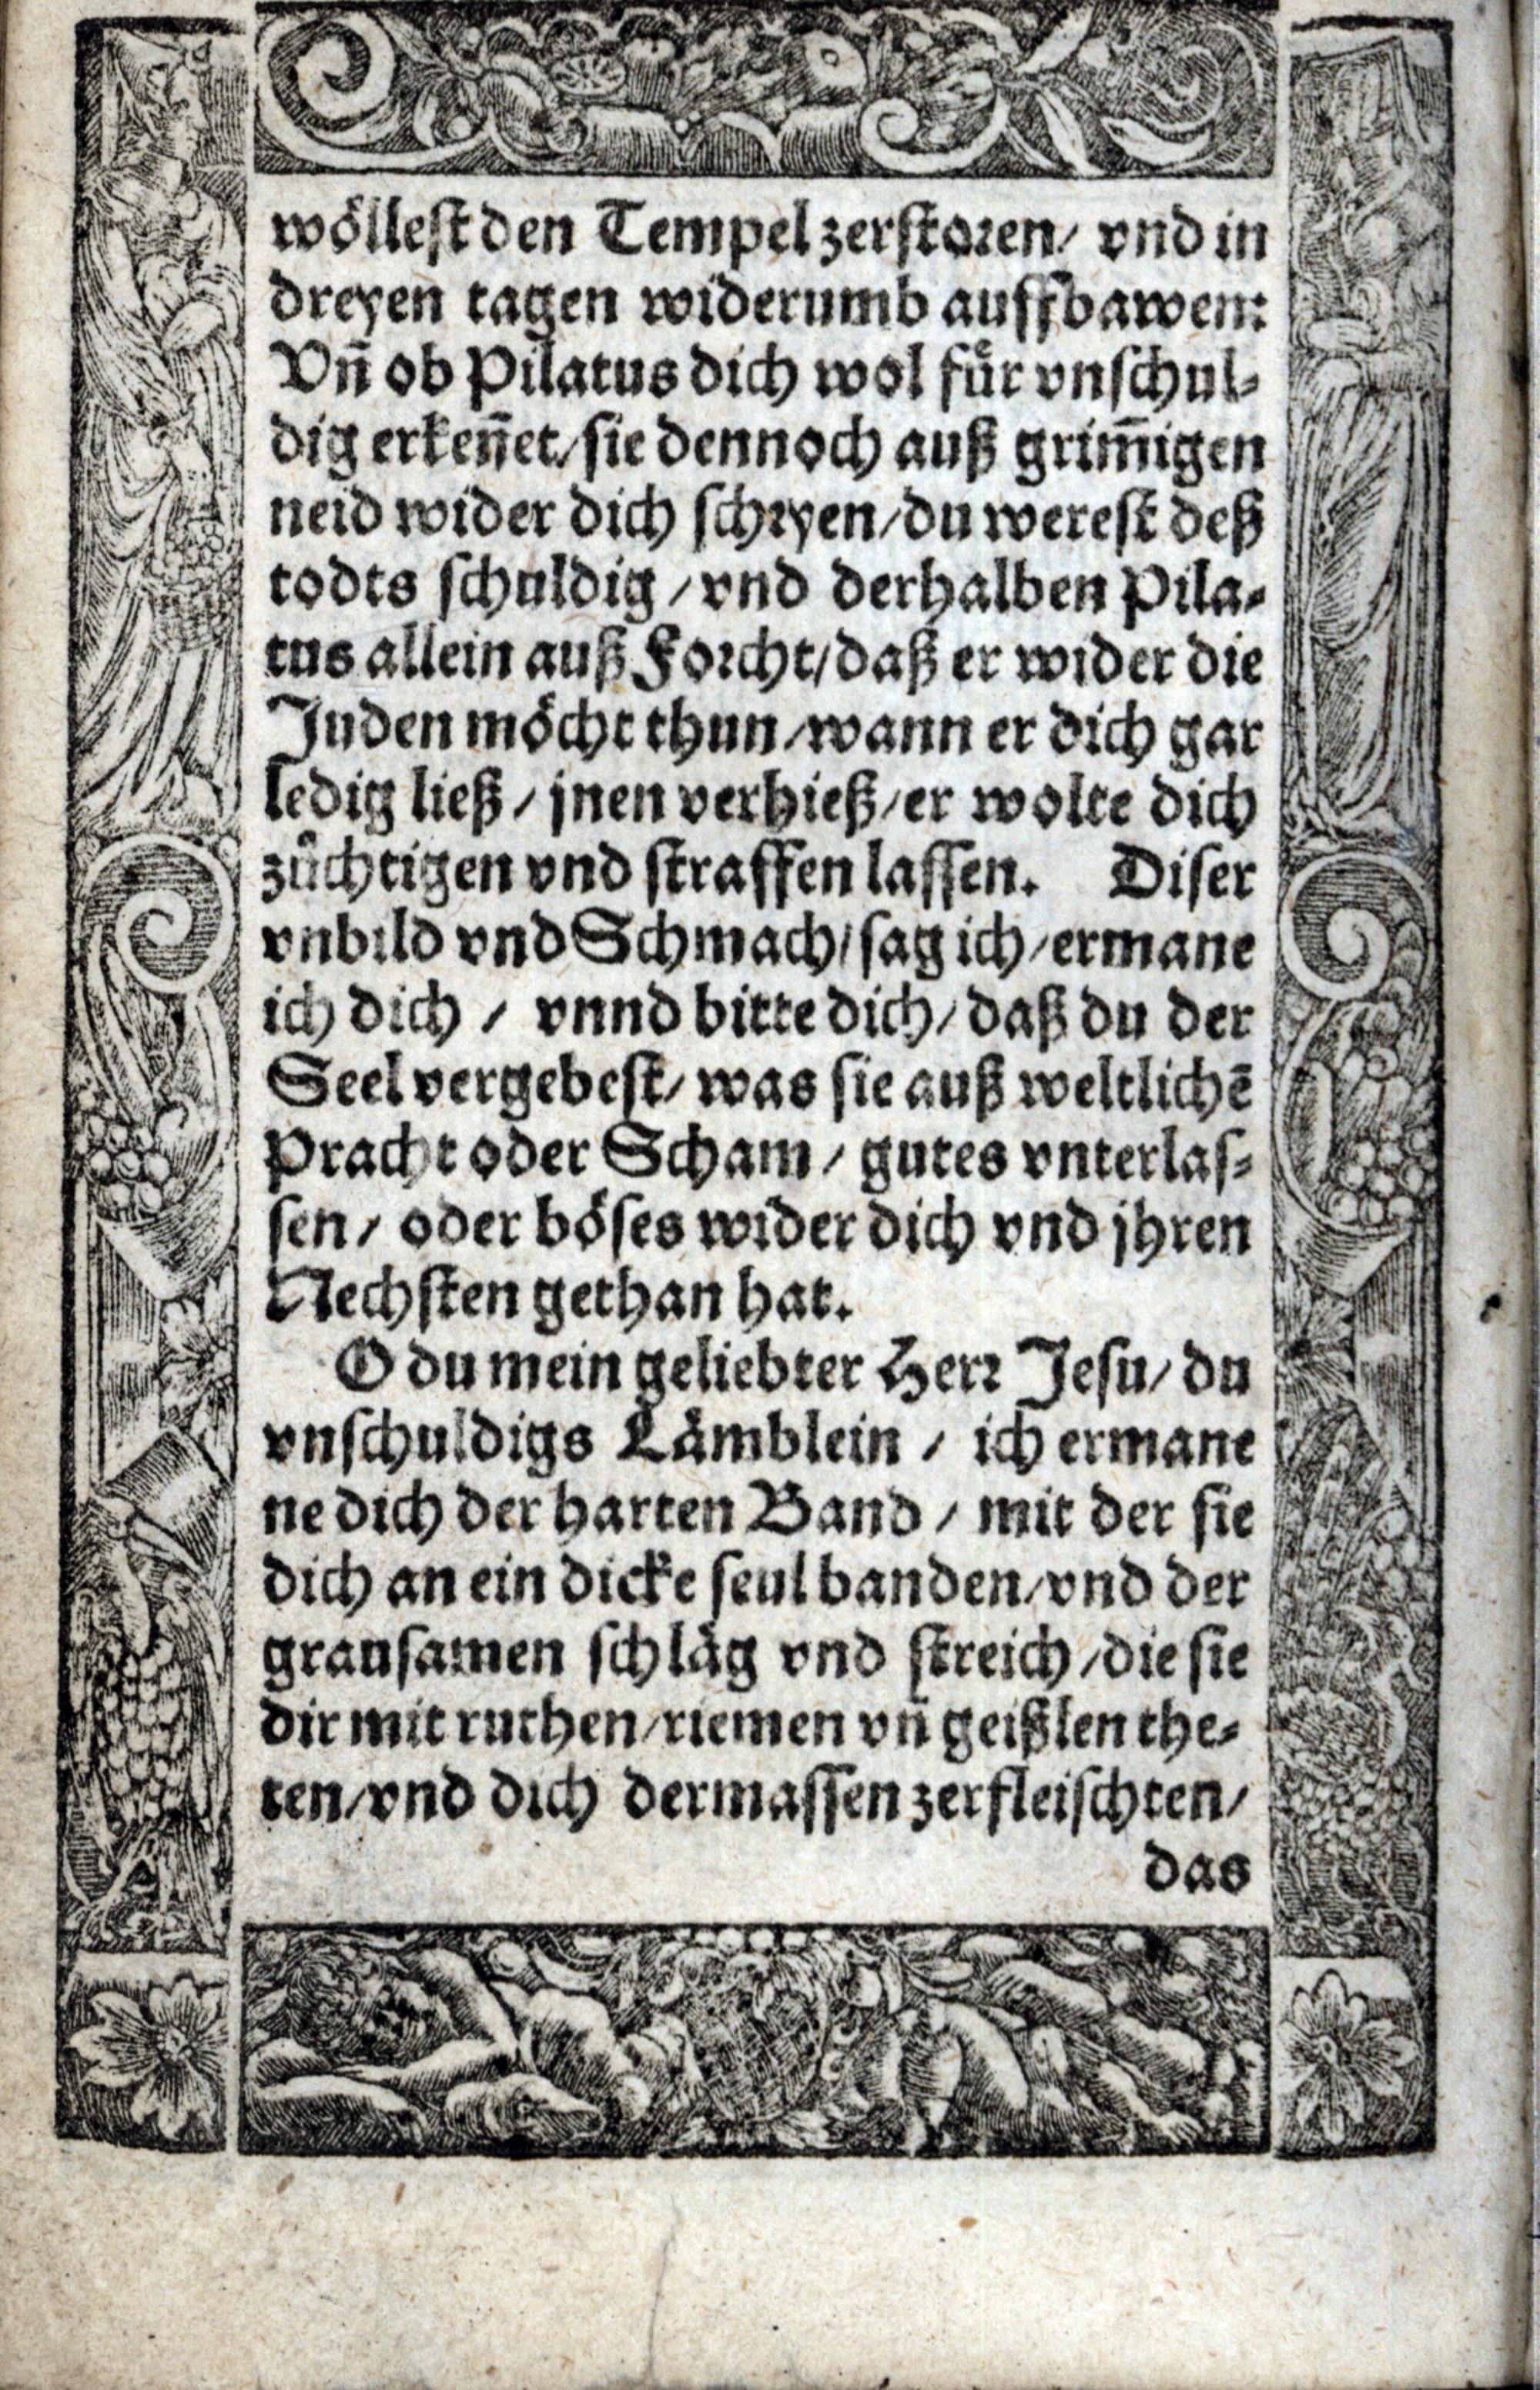 wöllest den Tempel zerstoren/ vnd in
dreyen tagen widerumb auffbawen:
Vn̄ ob Pilatus dich wol für vnschul-
dig erken̄et/ sie dennoch auß grim̄igen
neid wider dich schryen/ du werest deß
todts schuldig / vnd derhalben Pila-
tus allein auß Forcht/ daß er wider die
Juden möcht thun/ wann er dich gar
ledig ließ / jnen verhieß/ er wolte dich
züchtigen vnd straffen lassen. Diser
vnbild vnd Schmach/ sag ich/ ermane
ich dich / vnnd bitte dich/ daß du der
Seel vergebest/ was sie auß weltlichē
Pracht oder Scham / gutes vnterlas-
sen / oder böses wider dich vnd jhren
Nechsten gethan hat.
O du mein geliebter Herr Jesu/ du
vnschuldigs Lämblein / ich ermane
ne dich der harten Band / mit der sie
dich an ein dicke seul banden/ vnd der
grausamen schläg vnd streich / die sie
dir mit ruthen/ riemen vn̄ geißlen the-
ten/ vnd dich dermassen zerfleischten/
das